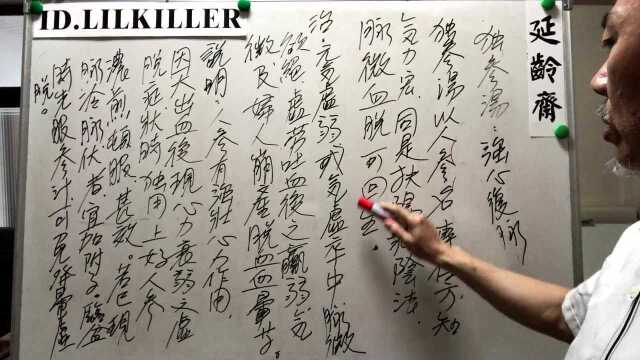 ID.LILKILLER
延齡齋
独參湯：強心復脉
独參湯以人參名專任方知
氣力宏．同是扶陽 陰法
脉微血脱可回生。
治．元氣虛弱或氣虛卒中脉微
欲絕．虛勞吐血後之羸弱氣
微及婦人崩產脱血血暈等。
說明：人參有強壯心力作用．
因大出血後現心力衰弱之虛
脱症狀時独用上好人參
濃煎頓服甚效。若已現
冷脉伏者宜加附子．臨盆
時先服參汁可免 暈虛
脱。